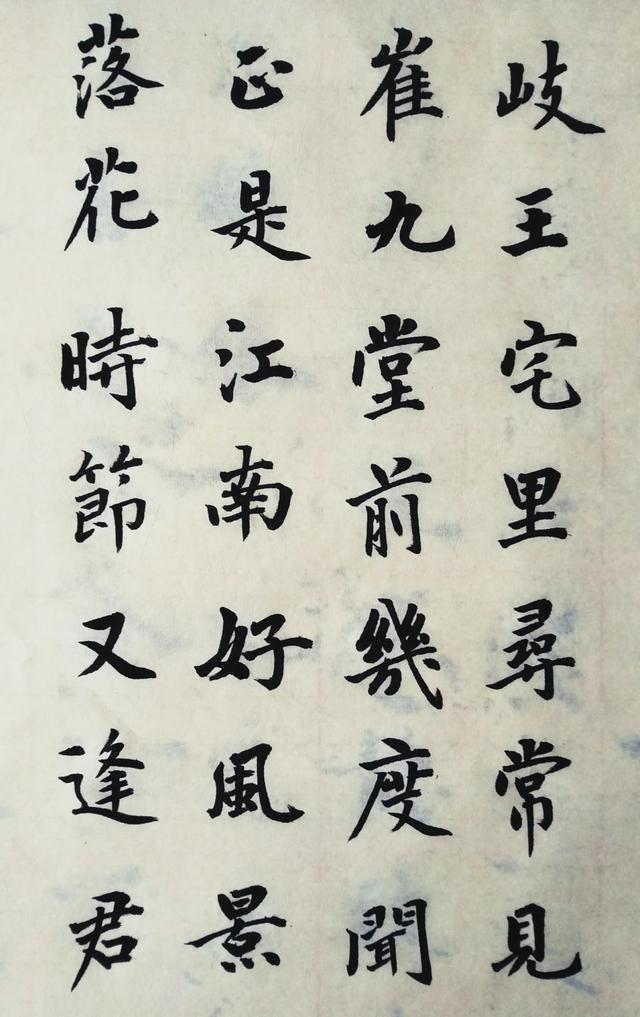 歧王宅里尋常見
崔九堂前幾度聞
正是江南好風景
落花時節又逢君